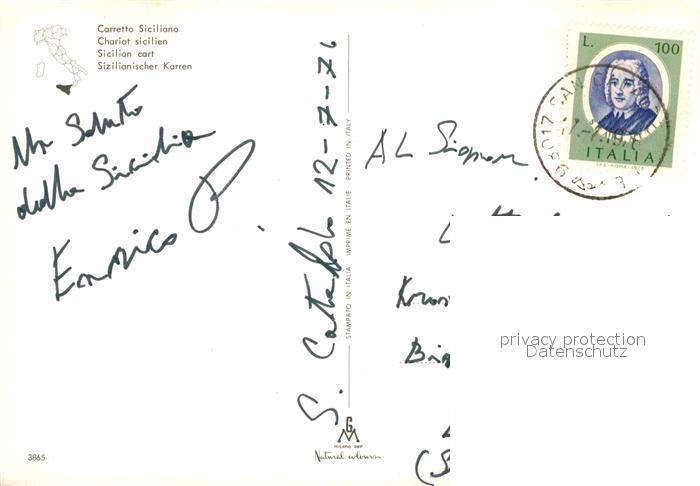 Carretto Siciliano
Chariot sicilien
Sicilian cart
Sizilianischer Karren
Un Saluto
dalla Sicilia
Enrico P.
S. Cataldo 12-7-76
STAMPATO IN ITALIA IMPRIMÉ EN ITALIE PRINTED IN ITALY
GM
MILANO
Natural colours
3865
L. 100
ITALIA
I.P.S.-ROMA-1975
93017 SAN
Al Signor
privacy protection
Datenschutz